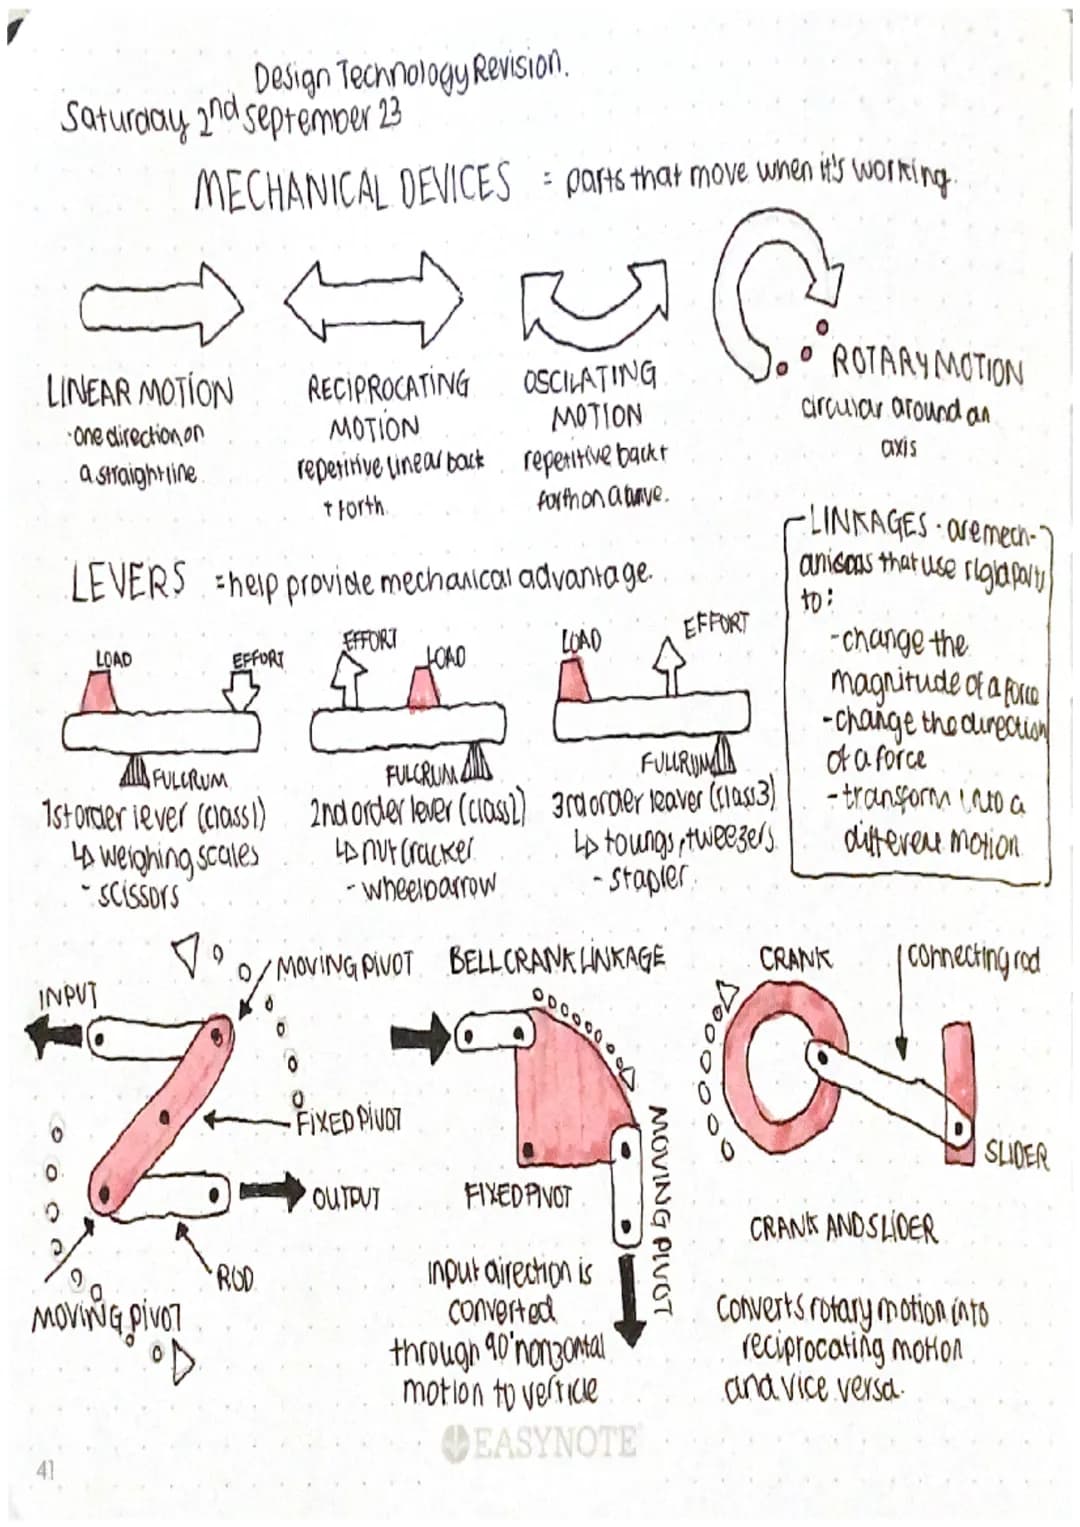 Design Technology Revision.
Saturday 2nd September 23
MECHANICAL DEVICES = parts that move when it's working.
LINEAR MOTION
·one direction on
a straight line.
RECIPROCATING
MOTION
repetitive linear back
+ forth.
OSCILATING
MOTION
repetitive back +
forth on a curve.
ROTARY MOTION
circular around an
axis
LINKAGES · are mech-
anisms that use rigid parts
to:
-change the
magnitude of a force
-change the direction
of a force
-transform into a
different motion
LEVERS =help provide mechanical advantage.
LOAD
EFFORT
FULCRUM
1st order lever (class1)
↳ weighing scales
- scissors
EFFORT
LOAD
FULCRUM
2nd order lever (class2)
↳ nut cracker
- wheelbarrow
LOAD
EFFORT
FULCRUM
3rd order leaver (class3)
↳ toungs, tweezers.
- stapler.
INPUT
MOVING PIVOT
FIXED PIVOT
OUTPUT
ROD
MOVING PIVOT
BELL CRANK LINKAGE
FIXED PIVOT
MOVING PIVOT
Input direction is
converted
through 90° horizontal
motion to verticle
CRANK
connecting rod
SLIDER
CRANK AND SLIDER
Converts rotary motion into
reciprocating motion
and vice versa.
EASYNOTE
41